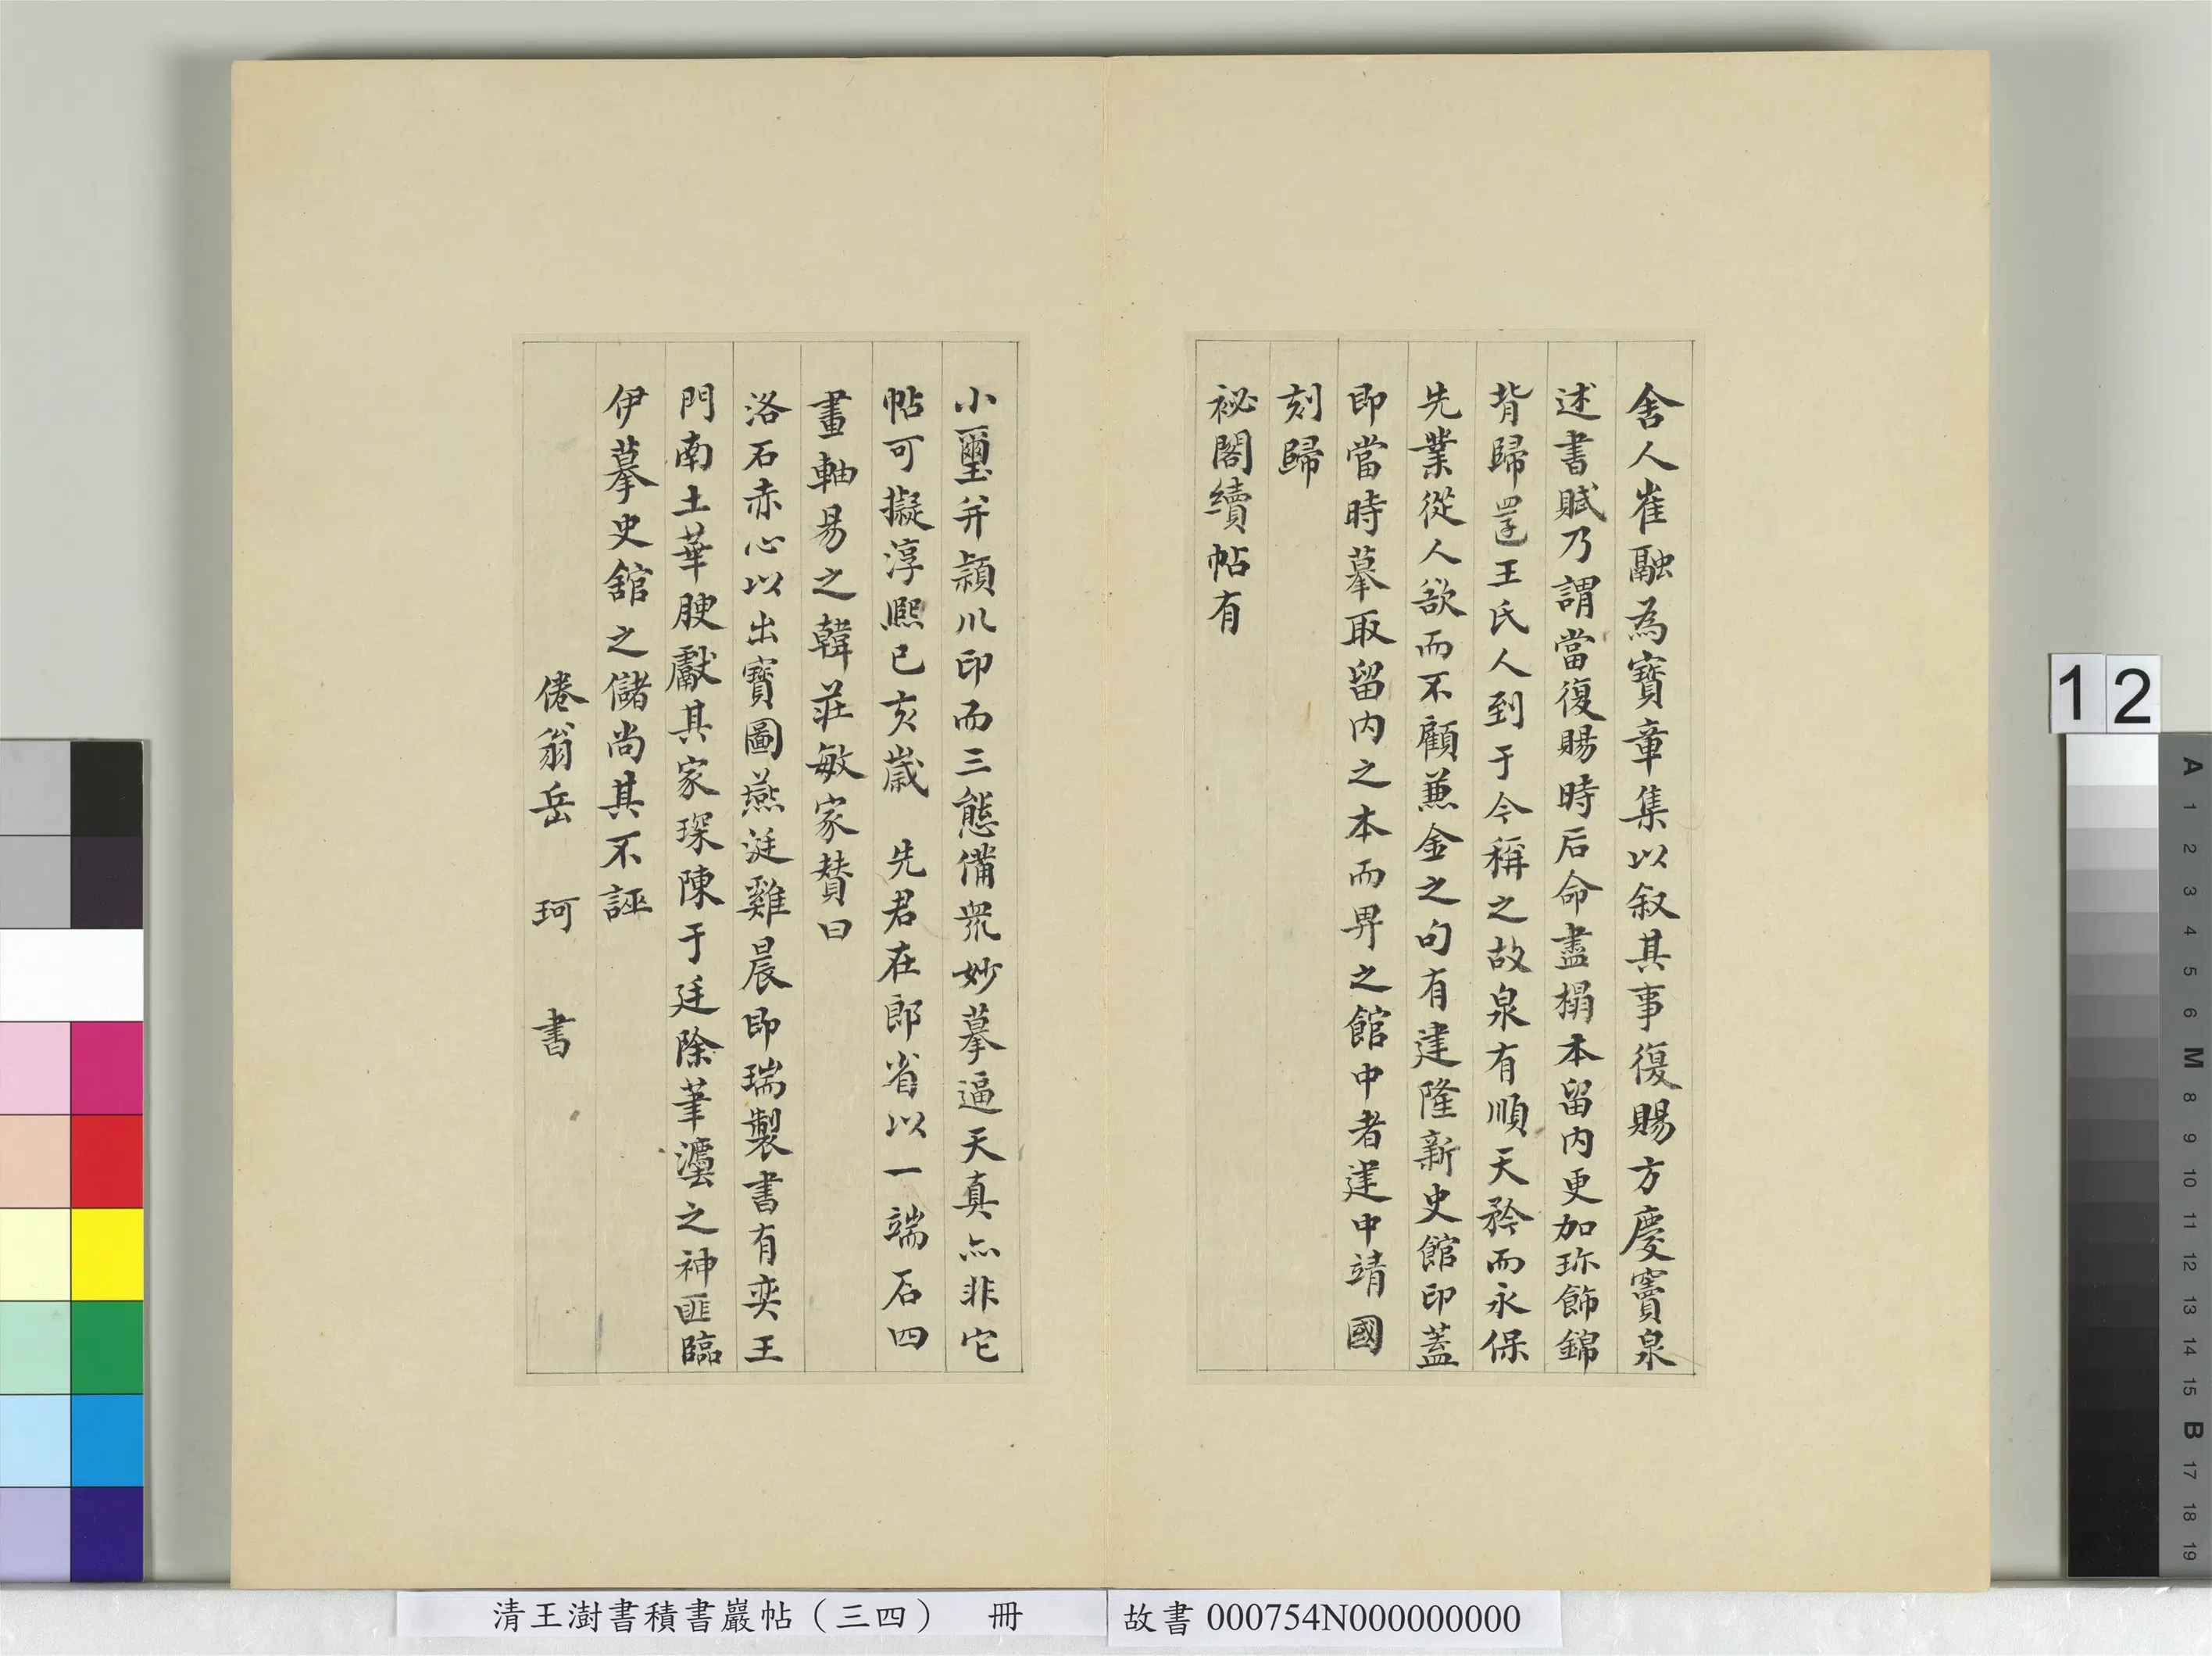 舍人崔融為寶章集以叙其事復賜方慶竇泉
述書賦乃謂當復賜時后命盡榻本留内更加珎飾錦
背歸還王氏人到于今稱之故泉有順天矜而永保
先業從人欲而不顧蒹金之句有建隆新史館印蓋
即當時摹取留内之本而畀之館中者建中靖國
刻歸
祕閣續帖有
小璽并潁川印而三態備衆妙摹逼天真亦非它
帖可擬淳熙已亥歲 先君在郎省以一端石四
畫軸易之韓莊敏家賛曰
洛石赤心以出寶圖燕涎雞晨即瑞製書有奕王
門南土華腴獻其家琛陳于廷除筆灋之神匪臨
伊摹史舘之儲尚其不誣
倦翁岳 珂 書
清王澍書積書巖帖（三四） 冊
故書 000754N000000000
12
A 1 2 3 4 5 6 M 8 9 10 11 12 13 14 15 B 17 18 19